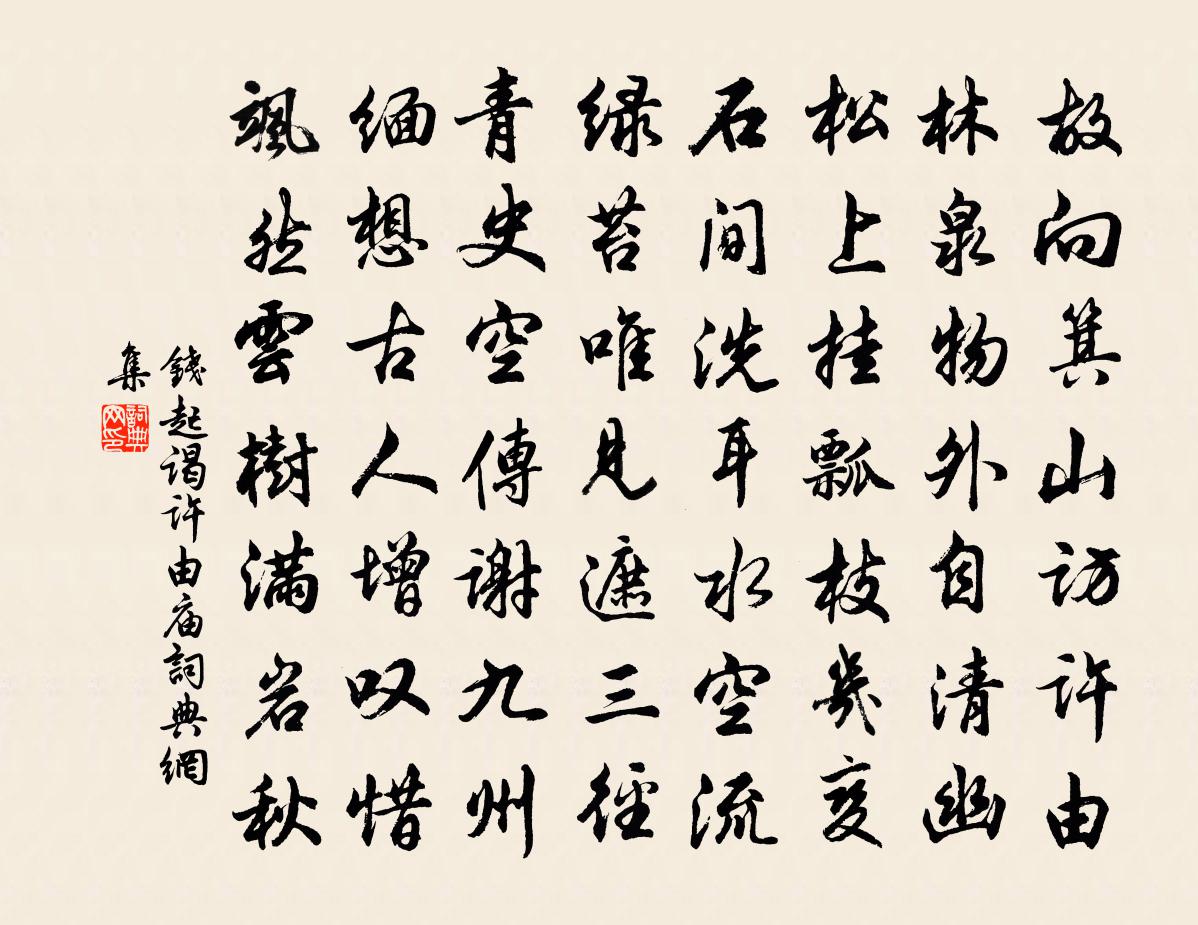 故向箕山访许由
林泉物外自清幽
松上挂瓢枝幾变
石间洗耳水空流
绿苔唯见遮三径
青史空傳谢九州
缅想古人增叹惜
飒然雲樹满岩秋
錢起谒许由庙詞典網
集
詞典
网印